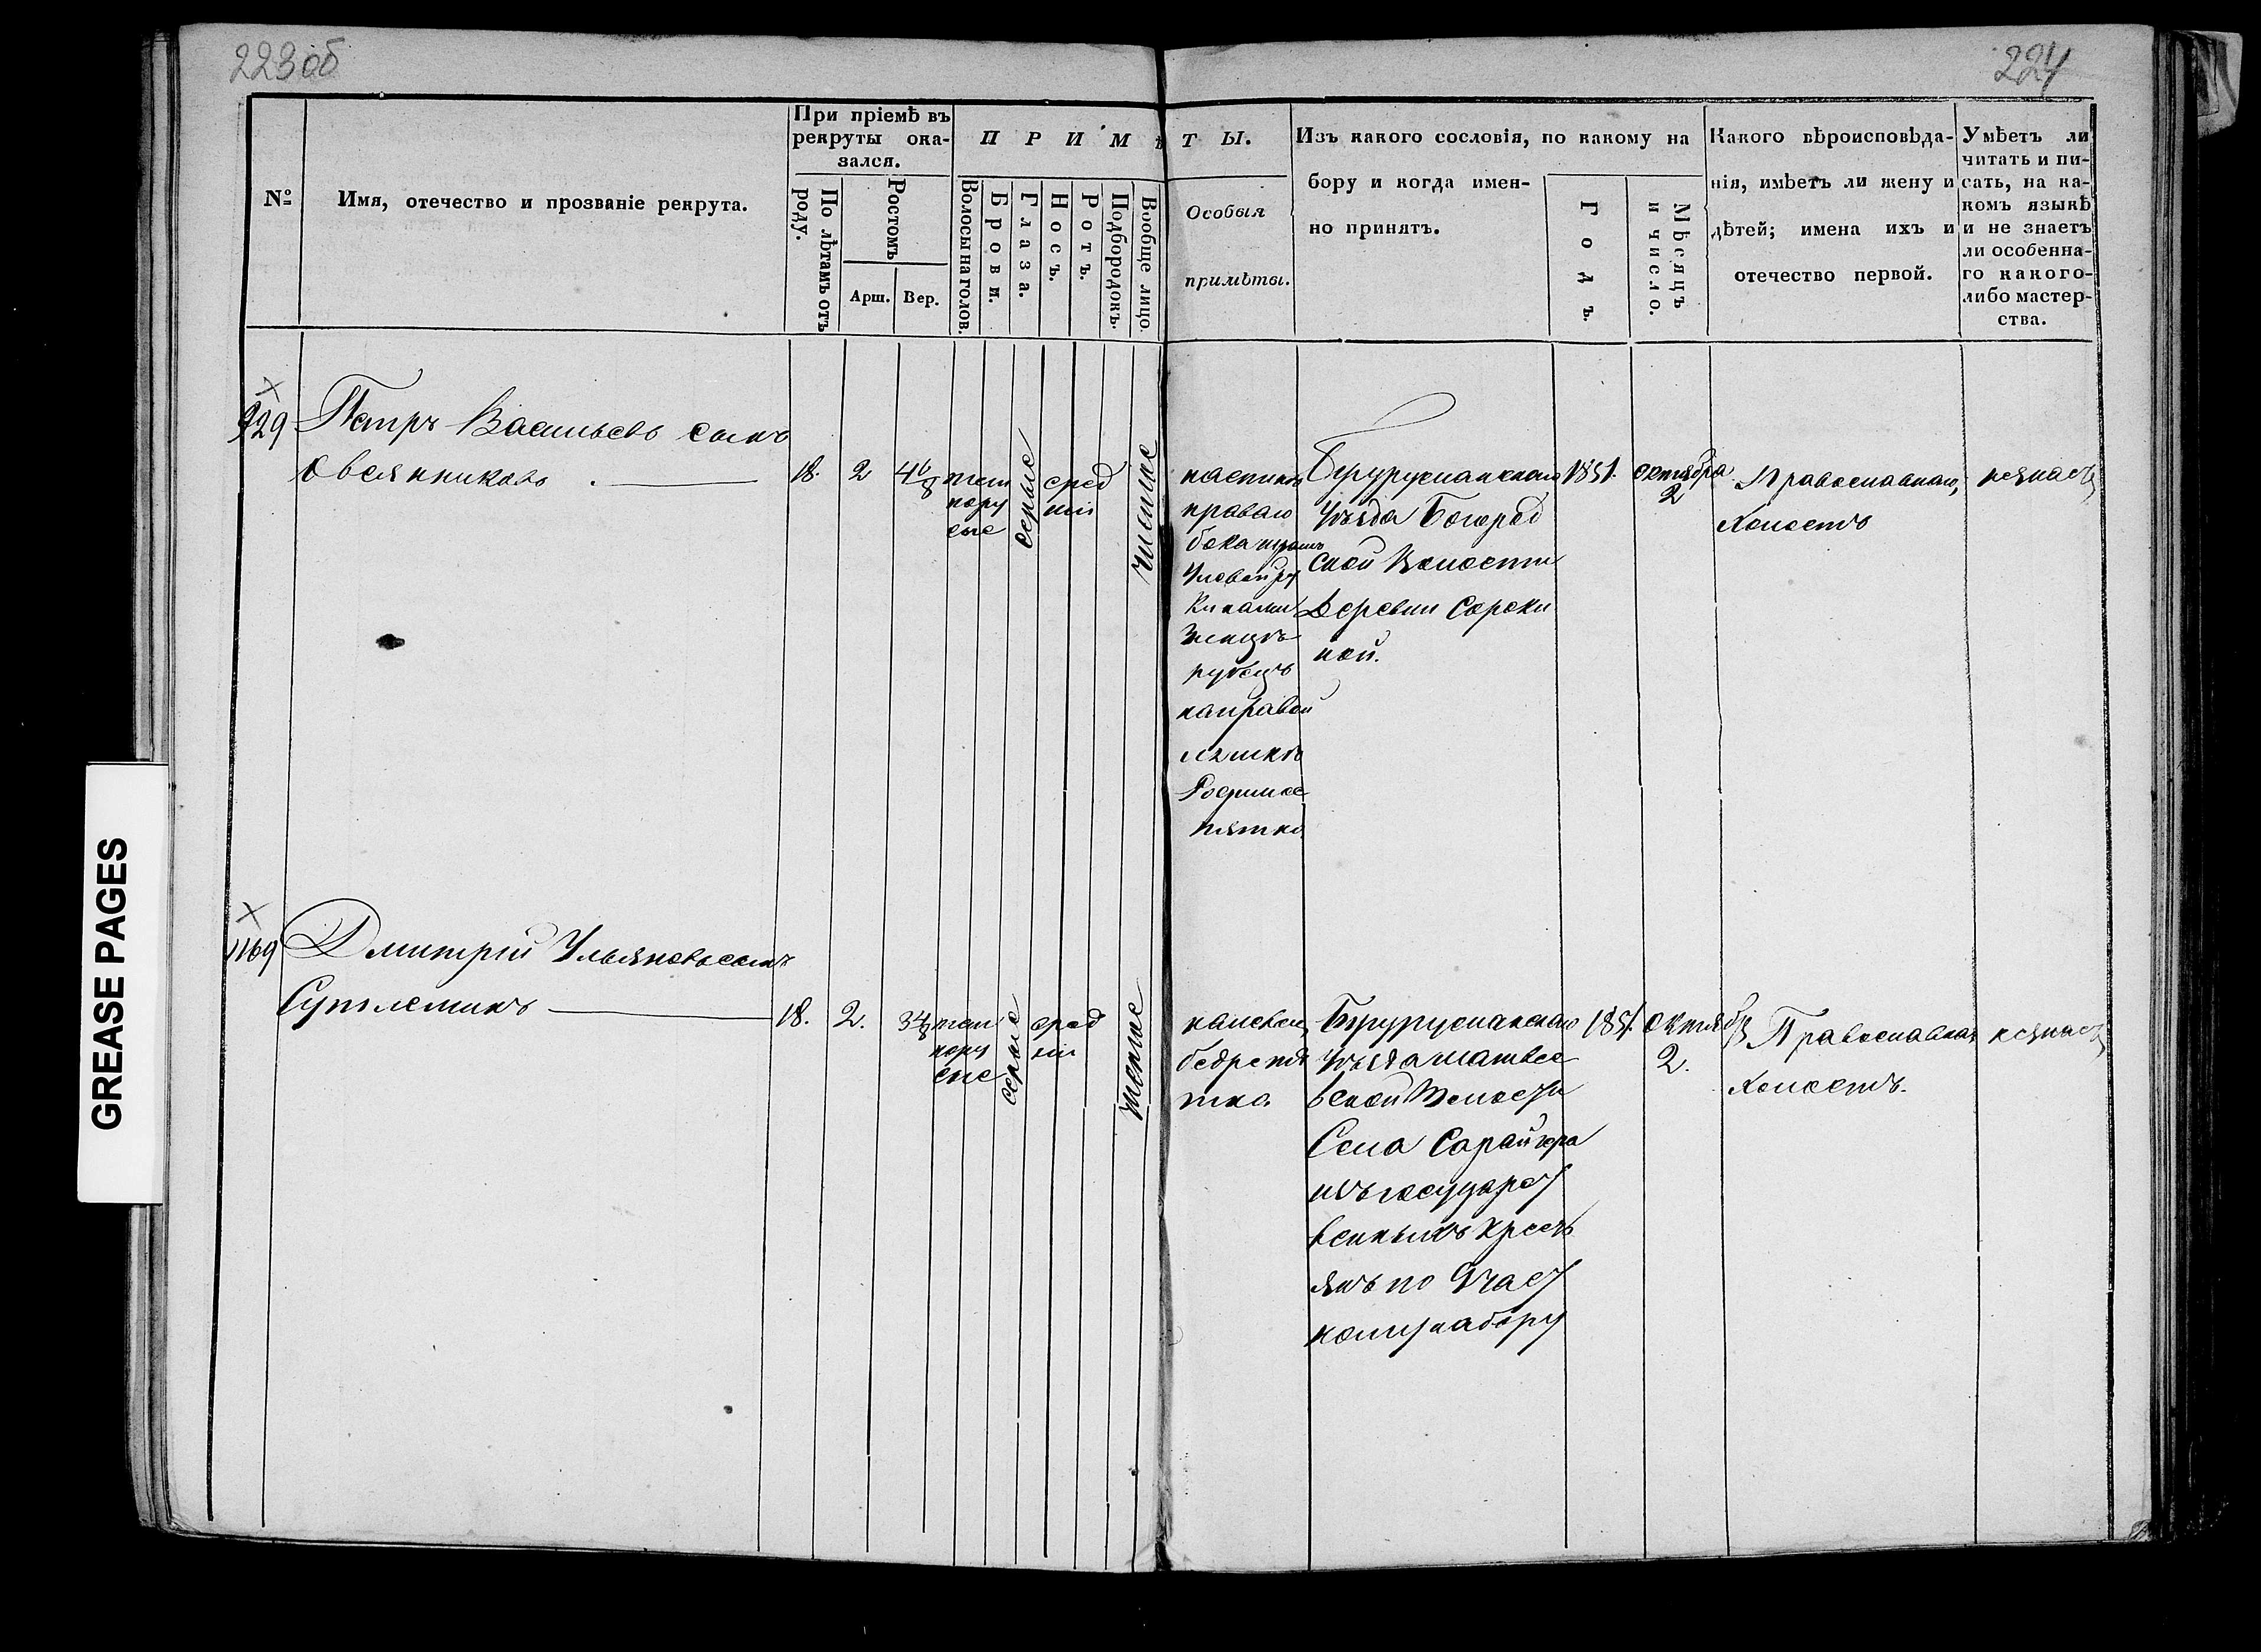 223об
224
GREASE PAGES
№
Имя, отечество и прозваніе рекрута.
При пріемѣ въ
рекруты ока-
зался.
По лѣтамъ отъ
роду.
Ростомъ
Арш.
Вер.
ПРИМѢТЫ.
Волосы на голов.
Брови.
Глаза.
Носъ.
Ротъ.
Подбородокъ.
Вообще лицо.
Особыя
примѣты.
Изъ какого сословія, по какому на
бору и когда имен-
но принятъ.
Годъ.
Мѣсяцъ
и число.
Какого вѣроисповѣда-
нія, имѣетъ ли жену и
дѣтей; имена ихъ и
отечество первой.
Умѣетъ ли
читать и пи-
сать, на ка-
комъ языкѣ
и не знаетъ
ли особенна-
го какого-
либо мастер-
ства.
929
Петръ Васильевъ сынъ
Овсянниковъ
18. 2 4 6/8
тем
нору
сые
серые
сред
ній
чистые
праваго
бока
рубецъ
на правой
ляшкѣ
Родимое
пятно
Бугурусланскаго
Уѣзда Богород
ской Волости
Деревни Сороки
ной.
1851.
октября
2
Православнаго,
Холостъ
незнаетъ
1169
Дмитрій Ульяновъ сынъ
18. 2.
тем
нору
сые
серые
сред
ній
на левой
бедре пя
тно.
Бугурусланскаго
Уѣзда Матвее
вской Волости
Села Сарайгира
изъ государст
венныхъ крест
янъ по 9 част
ному набору
1851.
октября
2.
Православнаго
Холостъ.
незнаетъ